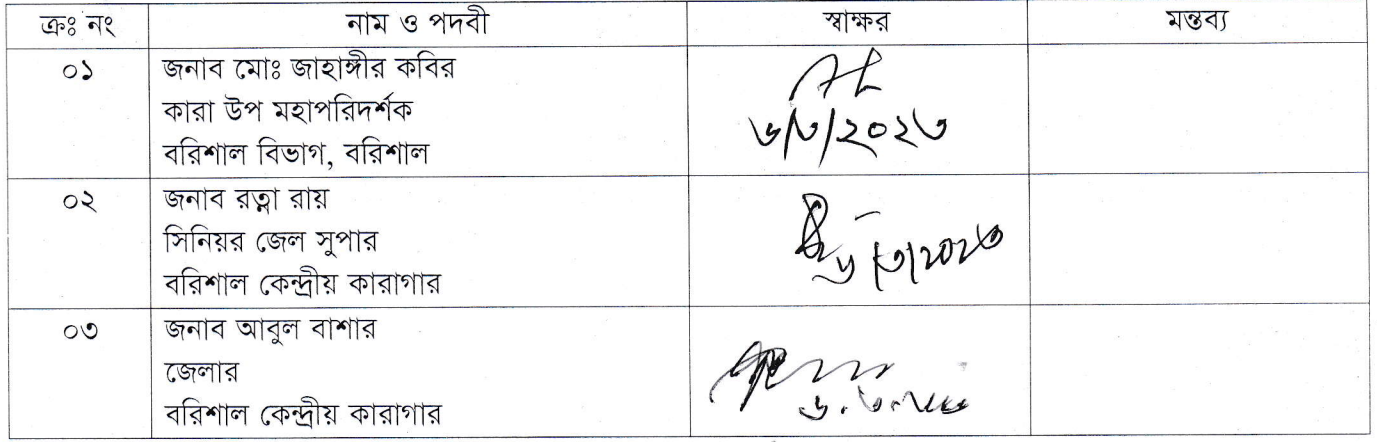 ক্রঃ নং নাম ও পদবী স্বাক্ষর মন্তব্য
০১ জনাব মোঃ জাহাঙ্গীর কবির
কারা উপ মহাপরিদর্শক
৬/৩/২০২৩
বরিশাল বিভাগ, বরিশাল
০২ জনাব রত্না রায়
সিনিয়র জেল সুপার
৬/৩/২০২৩
বরিশাল কেন্দ্রীয় কারাগার
০৩ জনাব আবুল বাশার
জেলার
বরিশাল কেন্দ্রীয় কারাগার